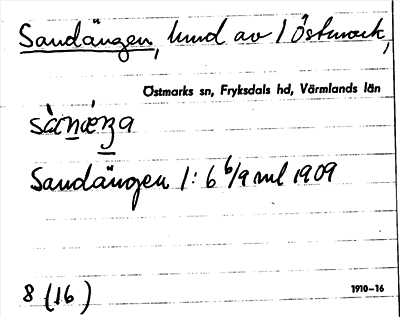 Sandängen, lund av 1 Östmark,
Östmarks sn, Fryksdals hd, Värmlands län
Sandängen 1:6 6/9 ml 1909
8 (16)
1910–16